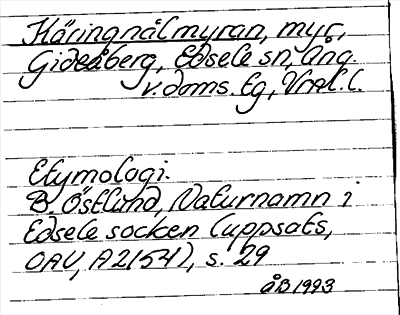 Häringnålmyran, myr,
Gideåberg, Edsele sn, Ång.
v. doms. lg, Vnrl. l.
Etymologi.
B. Östlund, Naturnamn i
Edsele socken (uppsats,
OAU, A2154), s. 29
åB 1993